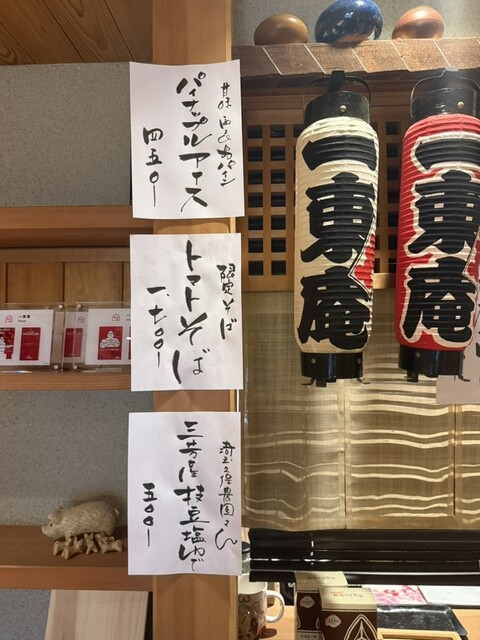 甘味
パイナップルアイス
四五〇-
限定そば
トマトそば
一、七〇〇-
埼玉久保農園さん
三芳産枝豆塩ゆで
五〇〇-
一東庵
一東庵